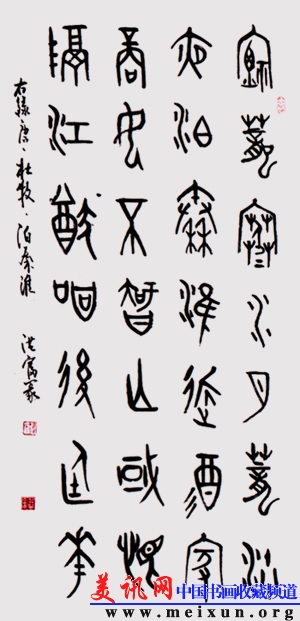 煙籠寒水月籠沙
夜泊秦淮近酒家
商女不智亡或愧
隔江猶唱後庭華
右錄唐·杜牧·泊秦淮
美讯网
中国书画收藏频道
www.meixun.org